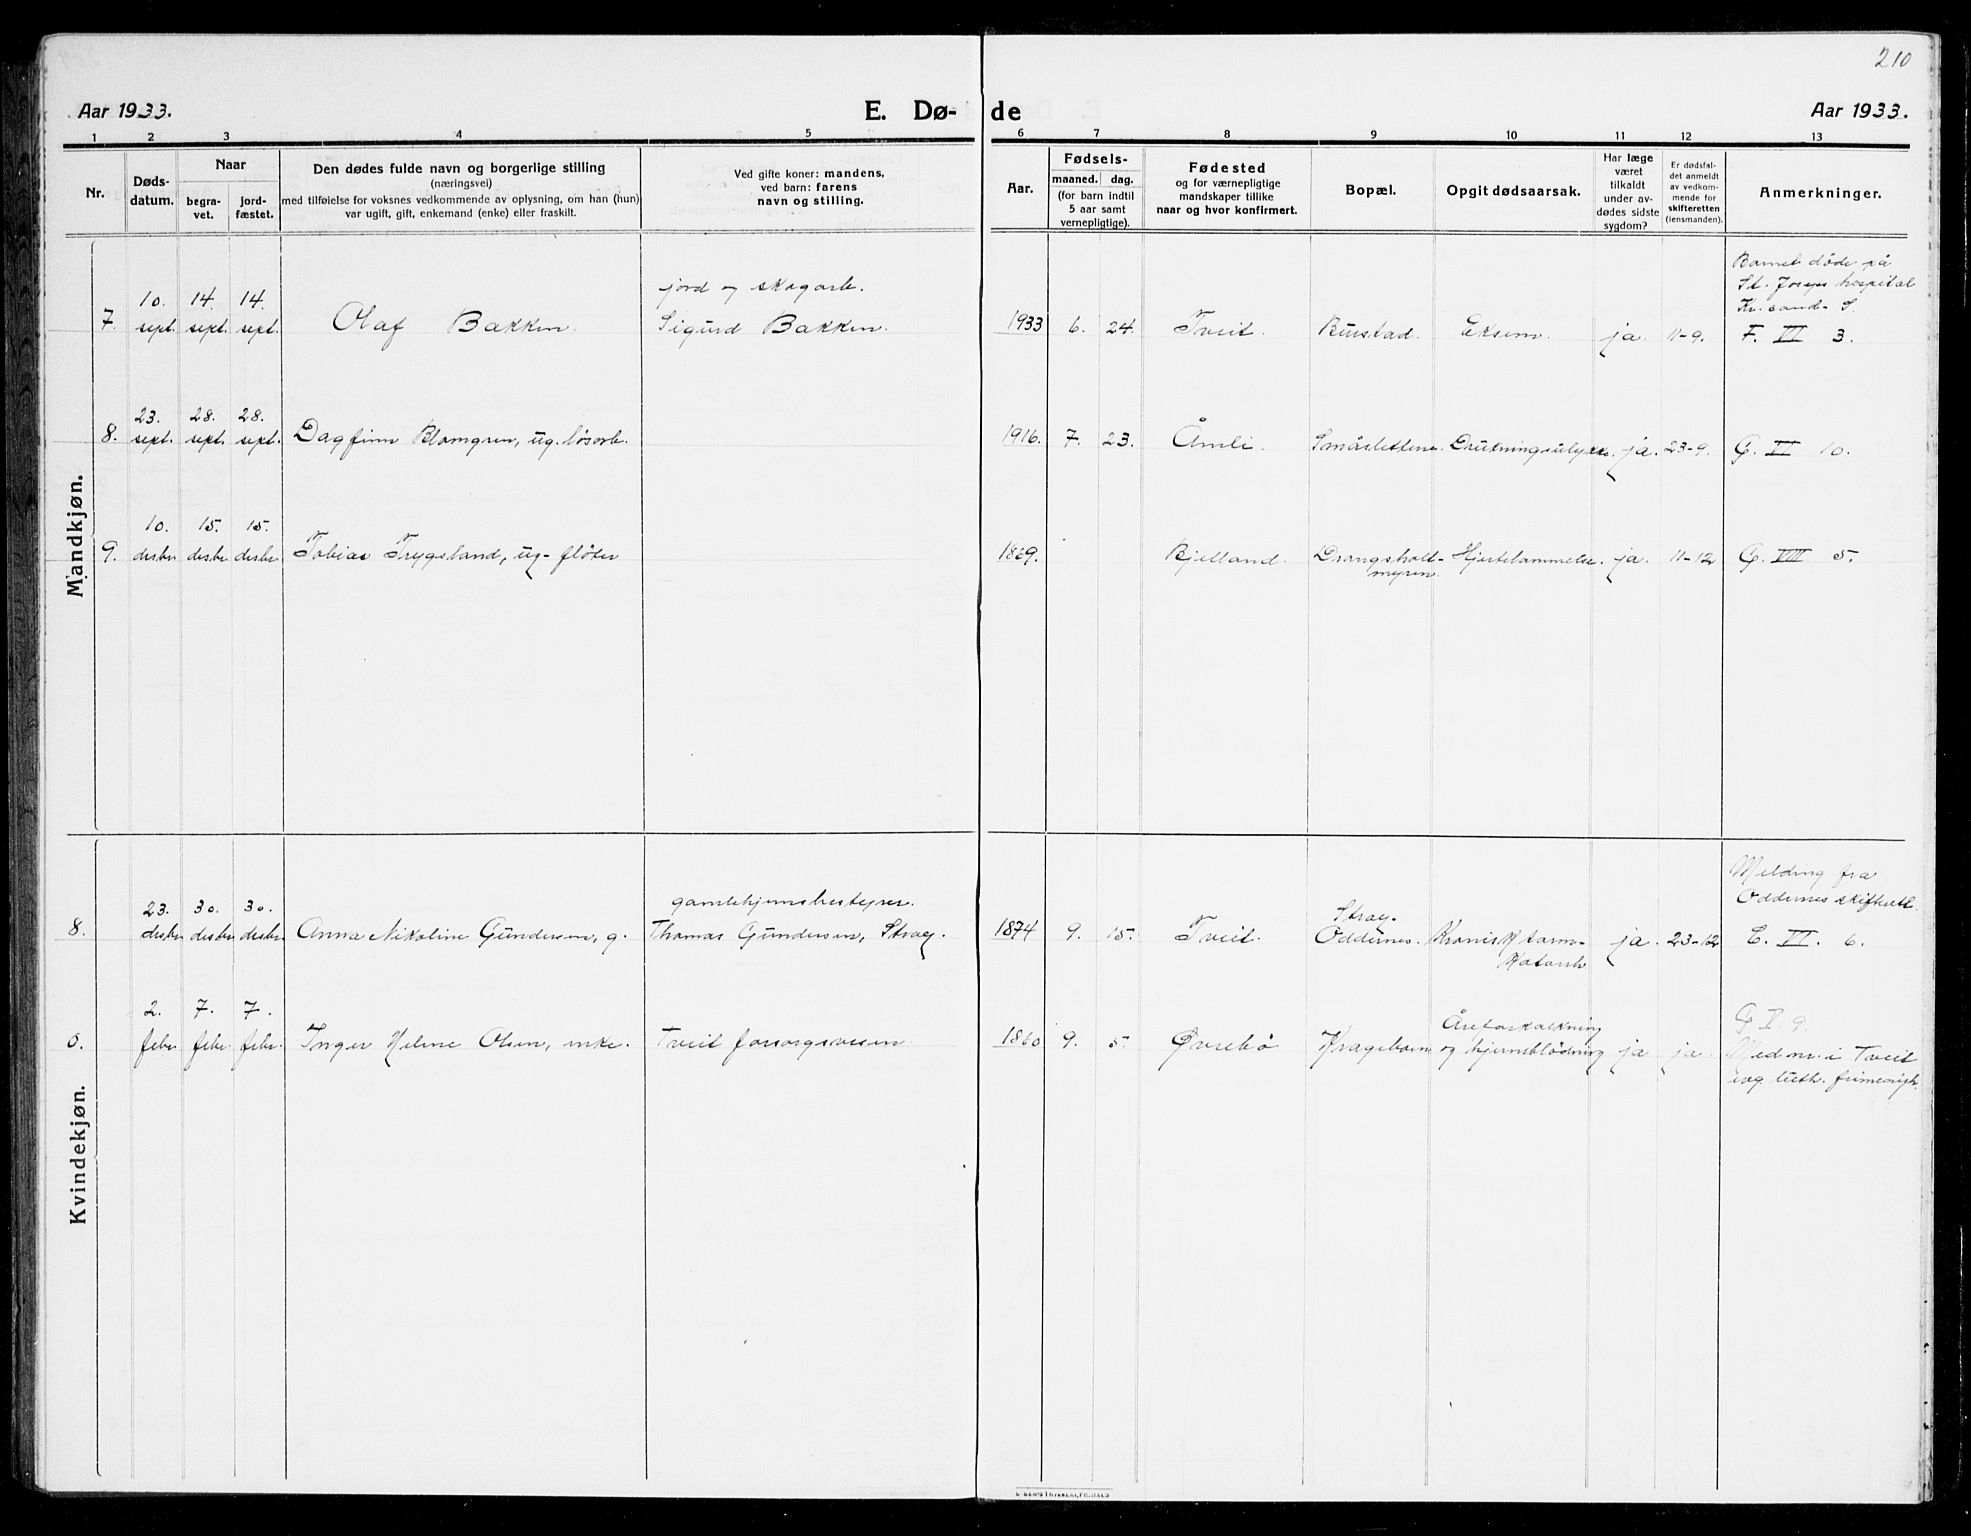 210
Aar 1933. E. Dø- de Aar 1933.
1 2 3 4 5 6 7 8 9 10 11 12 13
Nr.
Døds-
datum.
Naar
begra-
vet.
jord-
fæstet.
Den dødes fulde navn og borgerlige stilling
(næringsvei)
med tilføielse for voksnes vedkommende av oplysning, om han (hun)
var ugift, gift, enkemand (enke) eller fraskilt.
Ved gifte koner: mandens,
ved barn: farens
navn og stilling.
Aar.
Fødsels-
maaned. dag.
(for barn indtil
5 aar samt
vernepligtige).
Fødested
og for værnepligtige
mandskaper tillike
naar og hvor konfirmert.
Bopæl.
Opgit dødsaarsak.
Har læge
været
tilkaldt
under av-
dødes sidste
sygdom?
Er dødsfal-
det anmeldt
av vedkom-
mende for
skifteretten
(lensmanden).
Anmerkninger.
Mandkjøn.
7. 10. sept. 14. sept. 14. sept. Olaf Bakken.
jord og skogarb.
Sigurd Bakken.
1933 6. 24. Tveit. Buestad. Eksem. ja. 11-9.
Barnet døde på
St. Josefs hospital
Kr.sand. S.
F. VI 3.
8. 23. sept. 28. sept. 28. sept. Dagfinn Blomgren, ug. løsarb.
1916. 7. 23. Åmli. Småslettene. Drukningsulykke. ja. 23-9. G. VI 10.
9. 10. desbr 15. desbr 15. desbr Tobias Trygsland, ug. fløter
1869. Bjelland. Drangsholt-
myren. Hjertelammelse. ja. 11-12 G. VIII 5.
Kvindekjøn.
8. 23. desbr 30. desbr 30. desbr. Anna Nikoline Gundersen, g.
gamlehjemsbestyrer.
Thomas Gundersen, Stray.
1874 9. 15. Tveit. Stray-
Oddernes. Kronisk tarm-
katarrh ja. 23-12
Melding fra
Oddernes skifterett.
E. VI. 6.
0. 2. febr 7. febr. 7. febr. Inger Helene Olsen, enke. Tveit forsorgsvesen
1860 9. 5. Øvrebø Krageboen
Åreforkalkning
og hjerneblødning ja ja.
G V. 9.
Med nr. i Tveit
evg. luth. frimenigh.